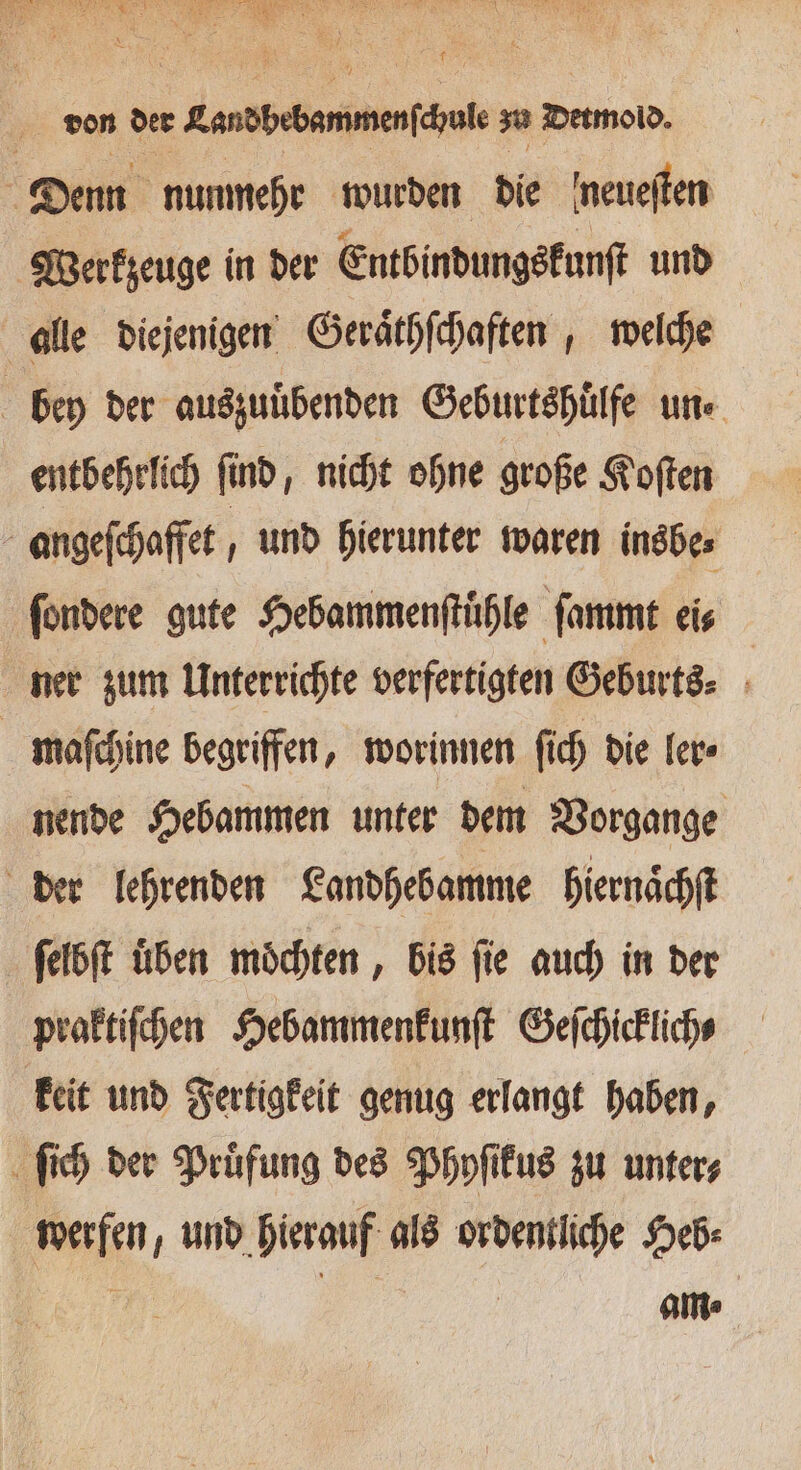 von der Landhebammenſchule zu Detmold.
Denn nunmehr wurden die neueſten
Werkzeuge in der Entbindungskunſt und
alle diejenigen Geraͤthſchaften, welche
bey der auszuuͤbenden Geburtshuͤlfe un⸗
entbehrlich ſind, nicht ohne große Koſten
angeſchaffet, und hierunter waren insbe⸗
ſondere gute Hebammenſtuͤhle ſammt ei⸗
ner zum Unterrichte verfertigten Geburts⸗
maſchine begriffen, worinnen ſich die ler⸗
nende Hebammen unter dem Vorgange
der lehrenden Landhebamme hiernaͤchſt
ſelbſt uͤben moͤchten, bis ſie auch in der
praktiſchen Hebammenkunſt Geſchicklich⸗
keit und Fertigkeit genug erlangt haben,
ſich der Pruͤfung des Phyſikus zu unter⸗
werfen, und hierauf als ordentliche Heb⸗
am⸗